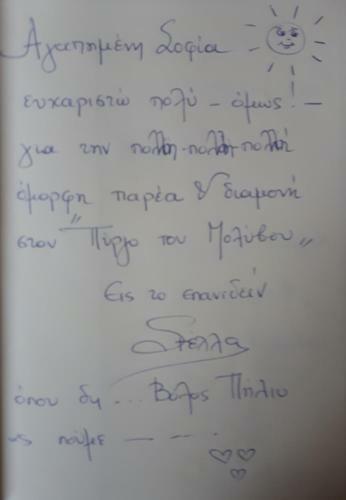 Αγαπημένη Σοφία
ευχαριστώ πολύ - όμως! -
για την πολλη-πολλη-πολλή
όμορφη παρέα & διαμονή
στον "Πύργο του Μολύβου"
Εις το επανιδείν
Στέλλα
όπου δη ... Βόλος Πήλιο
ας πούμε — — .